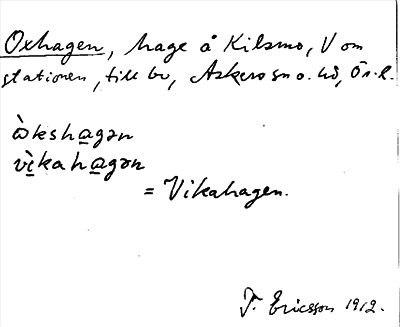 Oxhagen, hage å Kilsmo, V om
stationen, till bo, Askers sn o. hd, Ör. l.
òkshagən
vìkahagən
= Vikahagen.
T. Ericsson 1912.